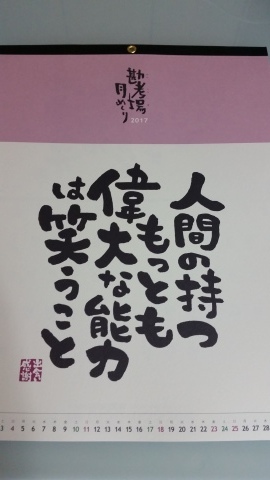 勘考場
月めくり
2017
人間の持つ
もっとも
偉大な能力
は笑うこと
3 4 5 6 7 8 9 10 11 12 13 14 15 16 17 18 19 20 21 22 23 24 25 26 27 28